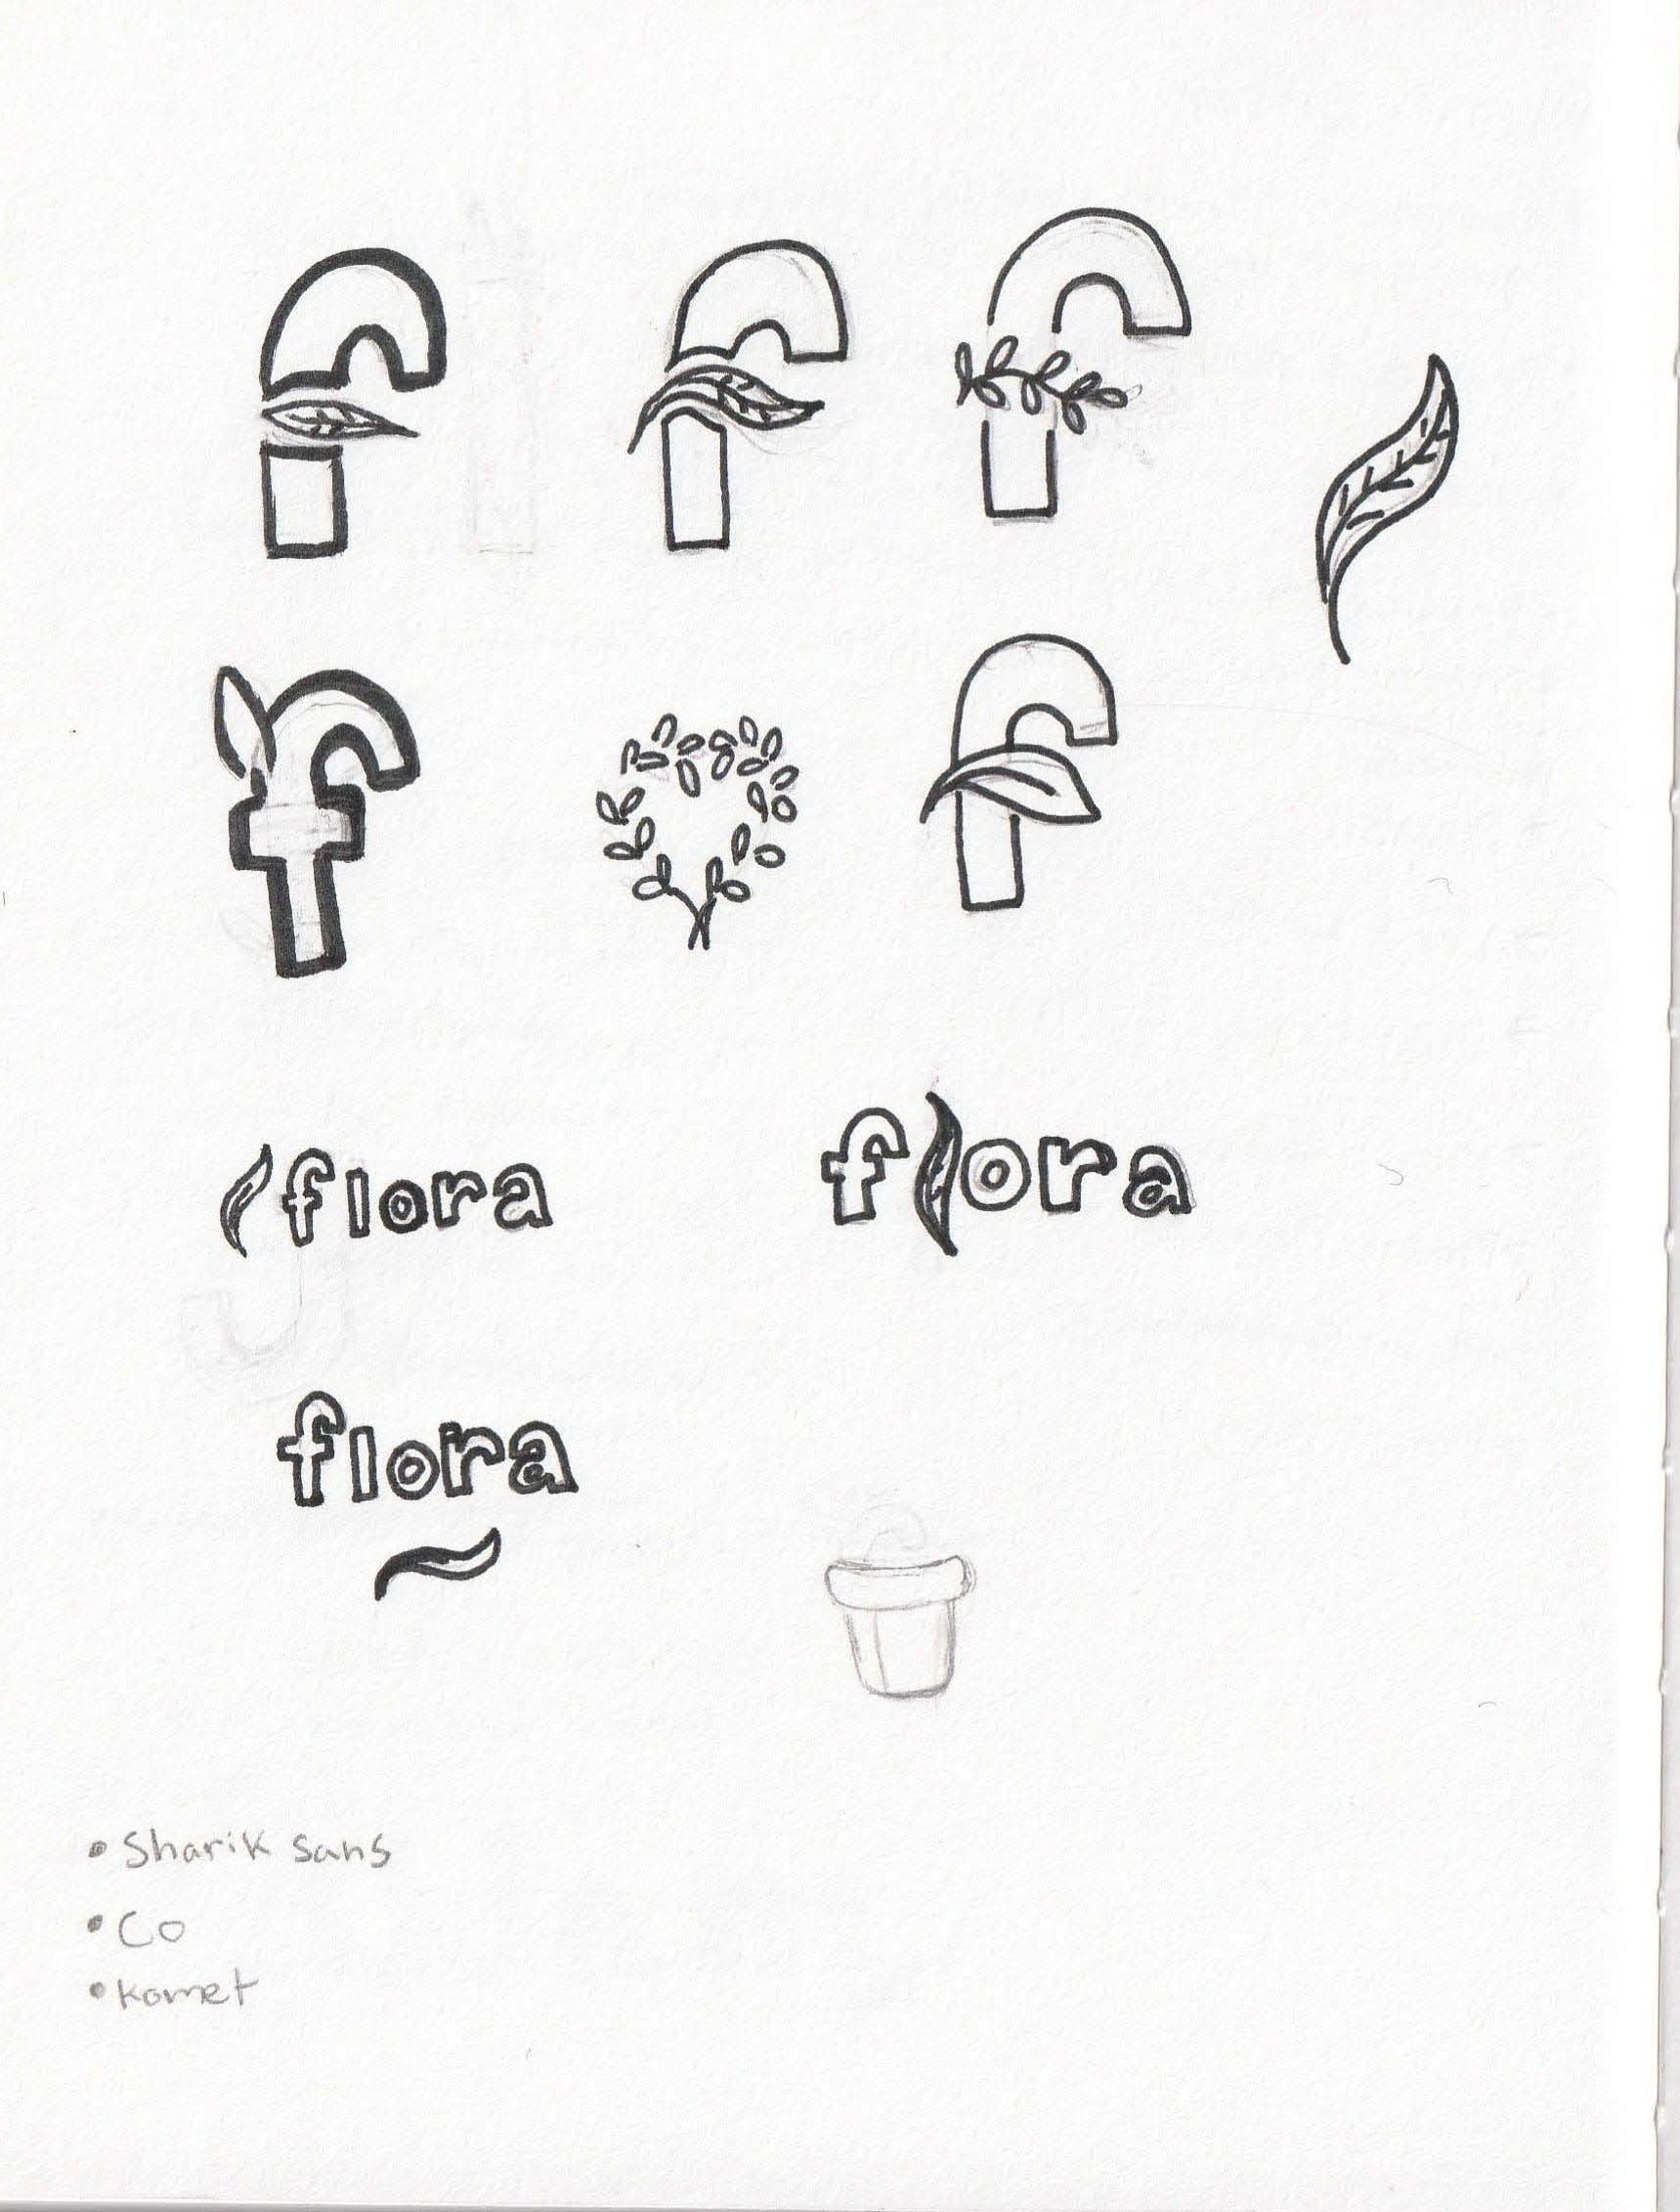 f f f
f f
flora flora
flora
• Sharik sans
• Co
• Komet